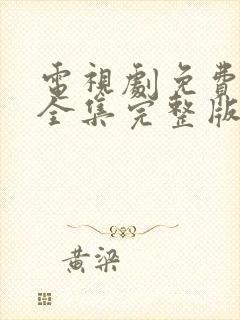 電視劇免費
全集完整版
黃梁